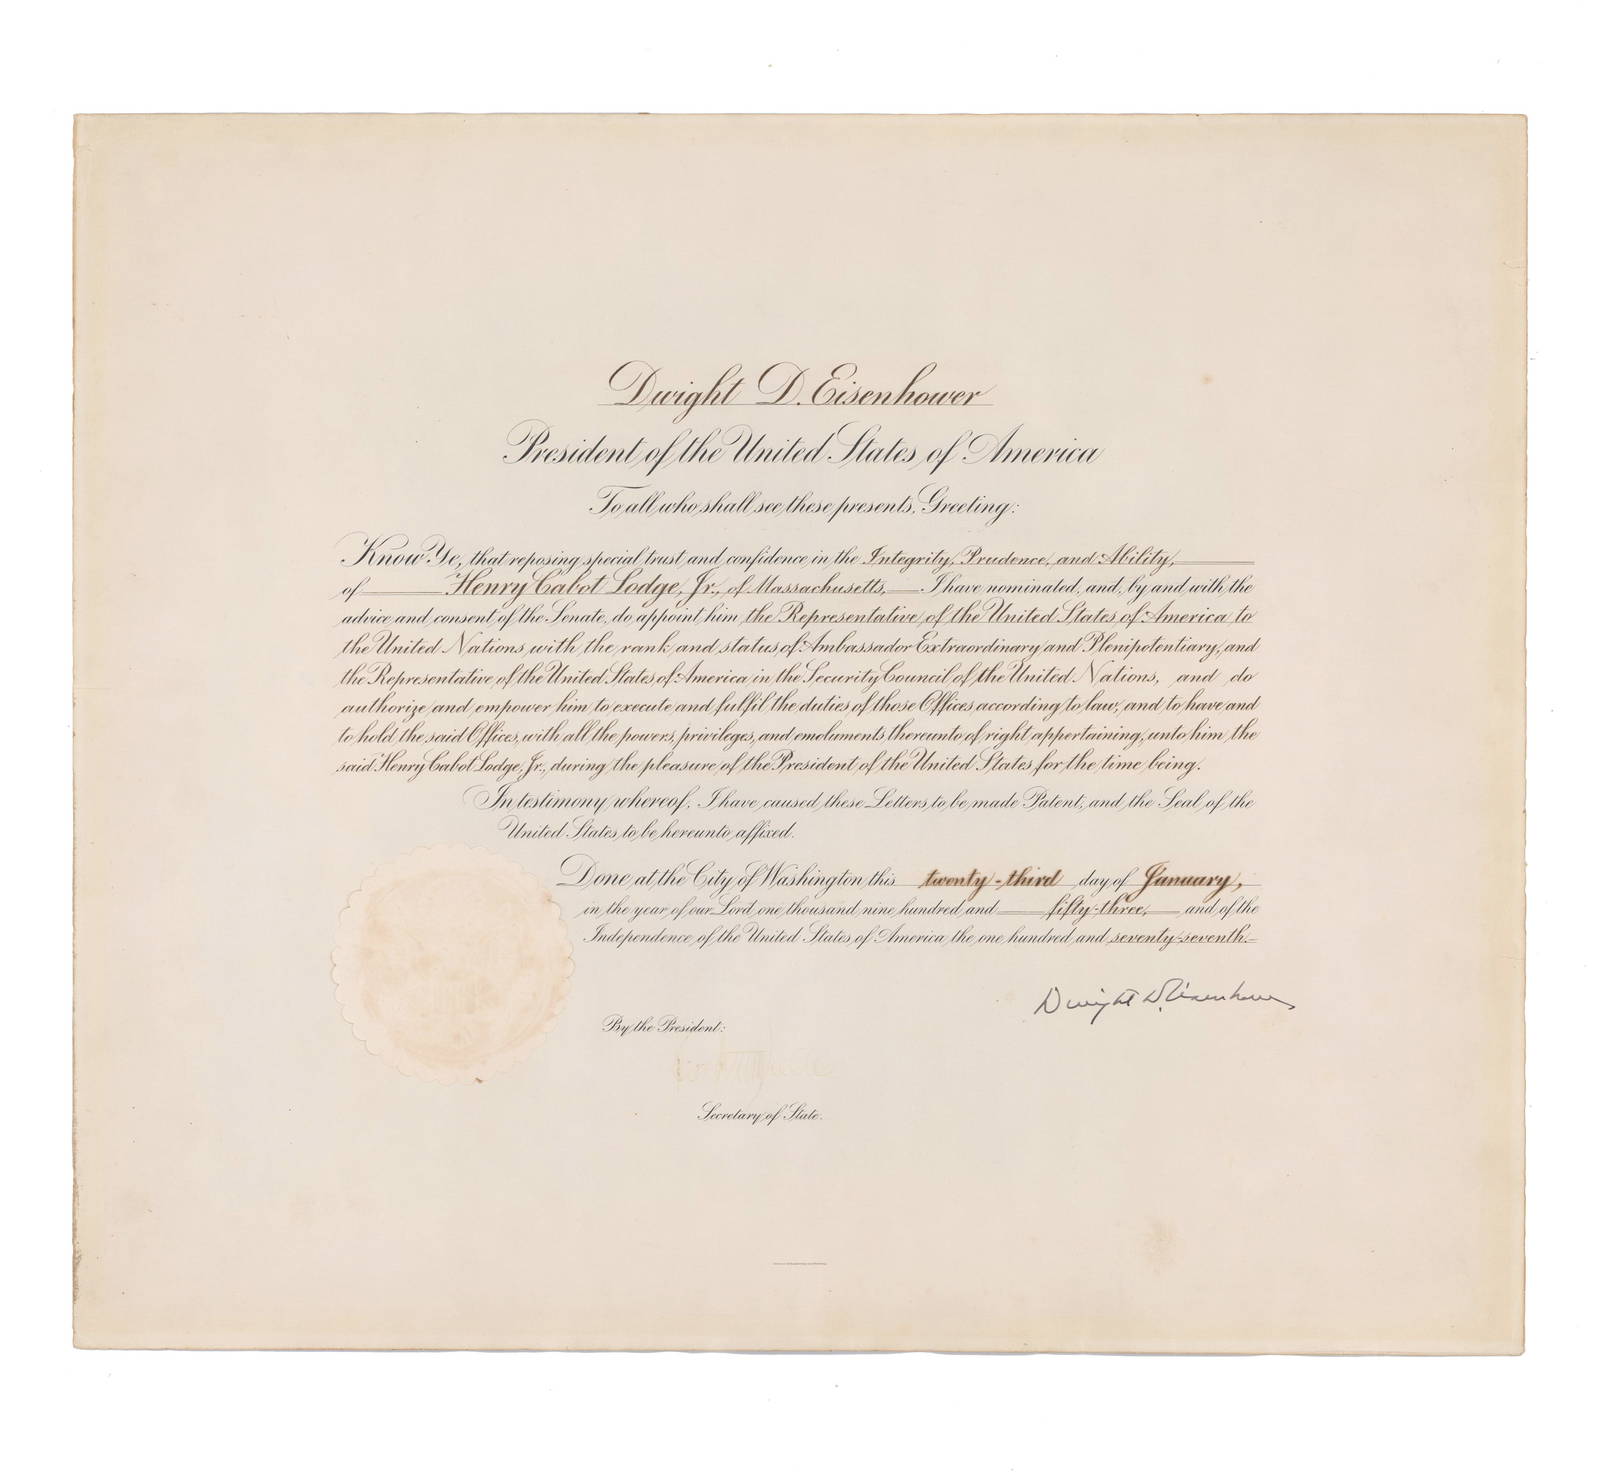 Dwight D. Eisenhower
President of the United States of America
To all who shall see these presents, Greeting:
Know Ye, that reposing special trust and confidence in the Integrity, Prudence, and Ability,
of Henry Cabot Lodge, Jr., of Massachusetts, I have nominated, and, by and with the
advice and consent of the Senate, do appoint him the Representative of the United States of America to
the United Nations, with the rank and status of Ambassador Extraordinary and Plenipotentiary, and
the Representative of the United States of America in the Security Council of the United Nations, and do
authorize and empower him to execute and fulfil the duties of those Offices according to law, and to have and
to hold the said Offices, with all the powers, privileges, and emoluments thereunto of right appertaining, unto him the
said Henry Cabot Lodge, Jr., during the pleasure of the President of the United States for the time being.
In testimony whereof, I have caused these Letters to be made Patent, and the Seal of the
United States to be hereunto affixed.
Done at the City of Washington this twenty-third day of January,
in the year of our Lord one thousand nine hundred and fifty-three, and of the
Independence of the United States of America the one hundred and seventy-seventh.
Dwight D. Eisenhower
By the President:
Secretary of State.